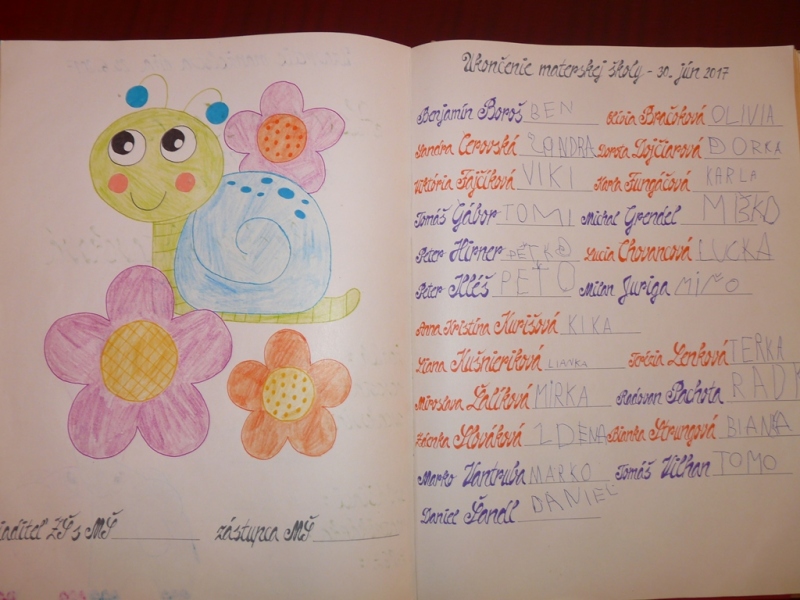 Ukončenie materskej školy - 30. jún 2017
Benjamín Boroš BEN Olívia Bračoková OLIVIA
Sandra Cerovská ZANDRA Dorota Dojčiarová ĎORKA
Viktória Fajčíková VIKI Karla Fungáčová KARLA
Tomáš Gábor TOMI Michal Grendel MIŠKO
Peter Hirner PEŤKO Lucia Chovancová LUCKA
Peter Illéš PEŤO Milan Juriga MIŇO
Anna Kristína Kurišová KIKA
Liana Kušnieriková LIANKA Terézia Lenková TERKA
Miroslava Šalíková MIRKA Radovan Pachota RADK
Zdenka Slováková ZDENA Bianka Strungová BIANKA
Marko Vantruba MARKO Tomáš Vilhan TOMO
Daniel Šandl DANIEL
iaditeľ ZŠ s MŠ zástupca MŠ